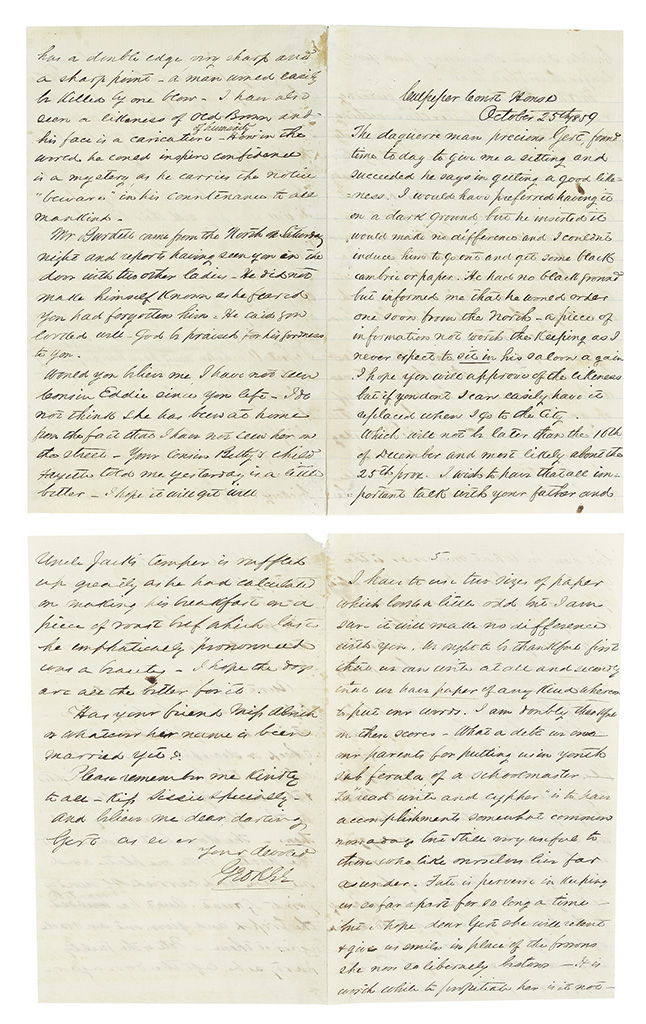 Culpeper Court House
October 25th, 1859
The daguerre man, precious Gert, found
time to day to give me a sitting and
succeeded he says in getting a good like-
ness. I would have preferred having it
on a dark ground but he insisted it
would make no difference and I couldn't
induce him to go out and get some black
cambric or paper. He had no black ground
but informed me that he would order
one soon from the North - a piece of
information not worth the keeping as I
never expect to sit in his saloon again
I hope you will approve of the likeness
but if you don't I can easily have it
replaced when I go to the City.
Which will not be later than the 10th
of December and most likely about the
25th prox. I wish to have that all im-
portant talk with your father and
has a double edge very sharp and
a sharp point - a man would easily
be killed by one blow - I have also
seen a likeness of Old Brown and
his face is a caricature of humanity - How in the
world he could inspire confidence
is a mystery as he carries the notice
"beware" in his countenance to all
mankind -
Mr Burdett came from the North on Saturday
night and reports having seen you in the
door with two other ladies - He did not
make himself known as he feared
you had forgotten him. He said you
looked well - God be praised for his goodness
to you.
Would you believe me, I have not seen
Cousin Eddie since you left - I do
not think she has been at home
from the fact that I have not seen her on
the street - Your Cousin Betty's child
Fayette told me yesterday is a little
better - I hope it will get well
5
I have to use two sizes of paper
which looks a little odd but I am
sure it will make no difference
with you. We ought to be thankful first
that we can write at all and secondly
that we have paper of any kind whereon
to put our words. I am doubly thankful
on these scores - What a debt we owe
our parents for putting us in youth
sub ferula of a schoolmaster
To "read write and cypher" is to have
accomplishments somewhat common
nowadays but still very useful to
those who like ourselves live far
asunder. Fate is perverse in keeping
us so far apart for so long a time -
but I hope dear Gert she will relent
& give us smiles in place of the frowns
she now so liberally bestows - It is
worth while to propitiate her is it not -
Uncle Jack's temper is ruffled
up greatly as he had calculated
on making his breakfast on a
piece of roast beef which last
he emphatically pronounced
was a beauty - I hope the dogs
are all the better for it.
Has your friend Miss
or whatever her name is been
married yet?
Please remember me kindly
to all - Kiss Sissie specially -
and believe me dear darling
Gert as ever
Your devoted